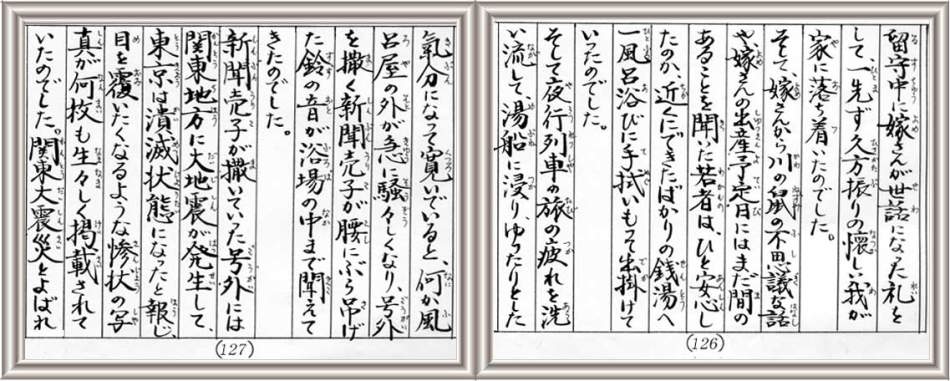 留守中に嫁さんが世話になった礼を
して、一先ず久方振りの懐しい我が
家に落ち着いたのでした。
そして、嫁さんから川の鼠の不思議な話
や嫁さんの出産予定日にはまだ間の
あることを聞いた若者は、ひと安心し
たのか、近くにできたばかりの銭湯へ
一風呂浴びに手拭いもって出掛けて
いったのでした。
そして夜行列車の旅の疲れを洗
い流して、湯船に浸り、ゆったりとした
(126)
氣分になって寛いでいると、何か風
呂屋の外が急に騒々しくなり、号外
を撒く新聞売子が腰にぶら吊げ
た鈴の音が浴場の中まで聞えて
きたのでした。
新聞売子が撒いていった号外には
関東地方に大地震が発生して、
東京は潰滅状態になったと報じ、
目を覆いたくなるような惨状の写
真が何枚も生々しく掲載されて
いたのでした。関東大震災とよばれ
(127)